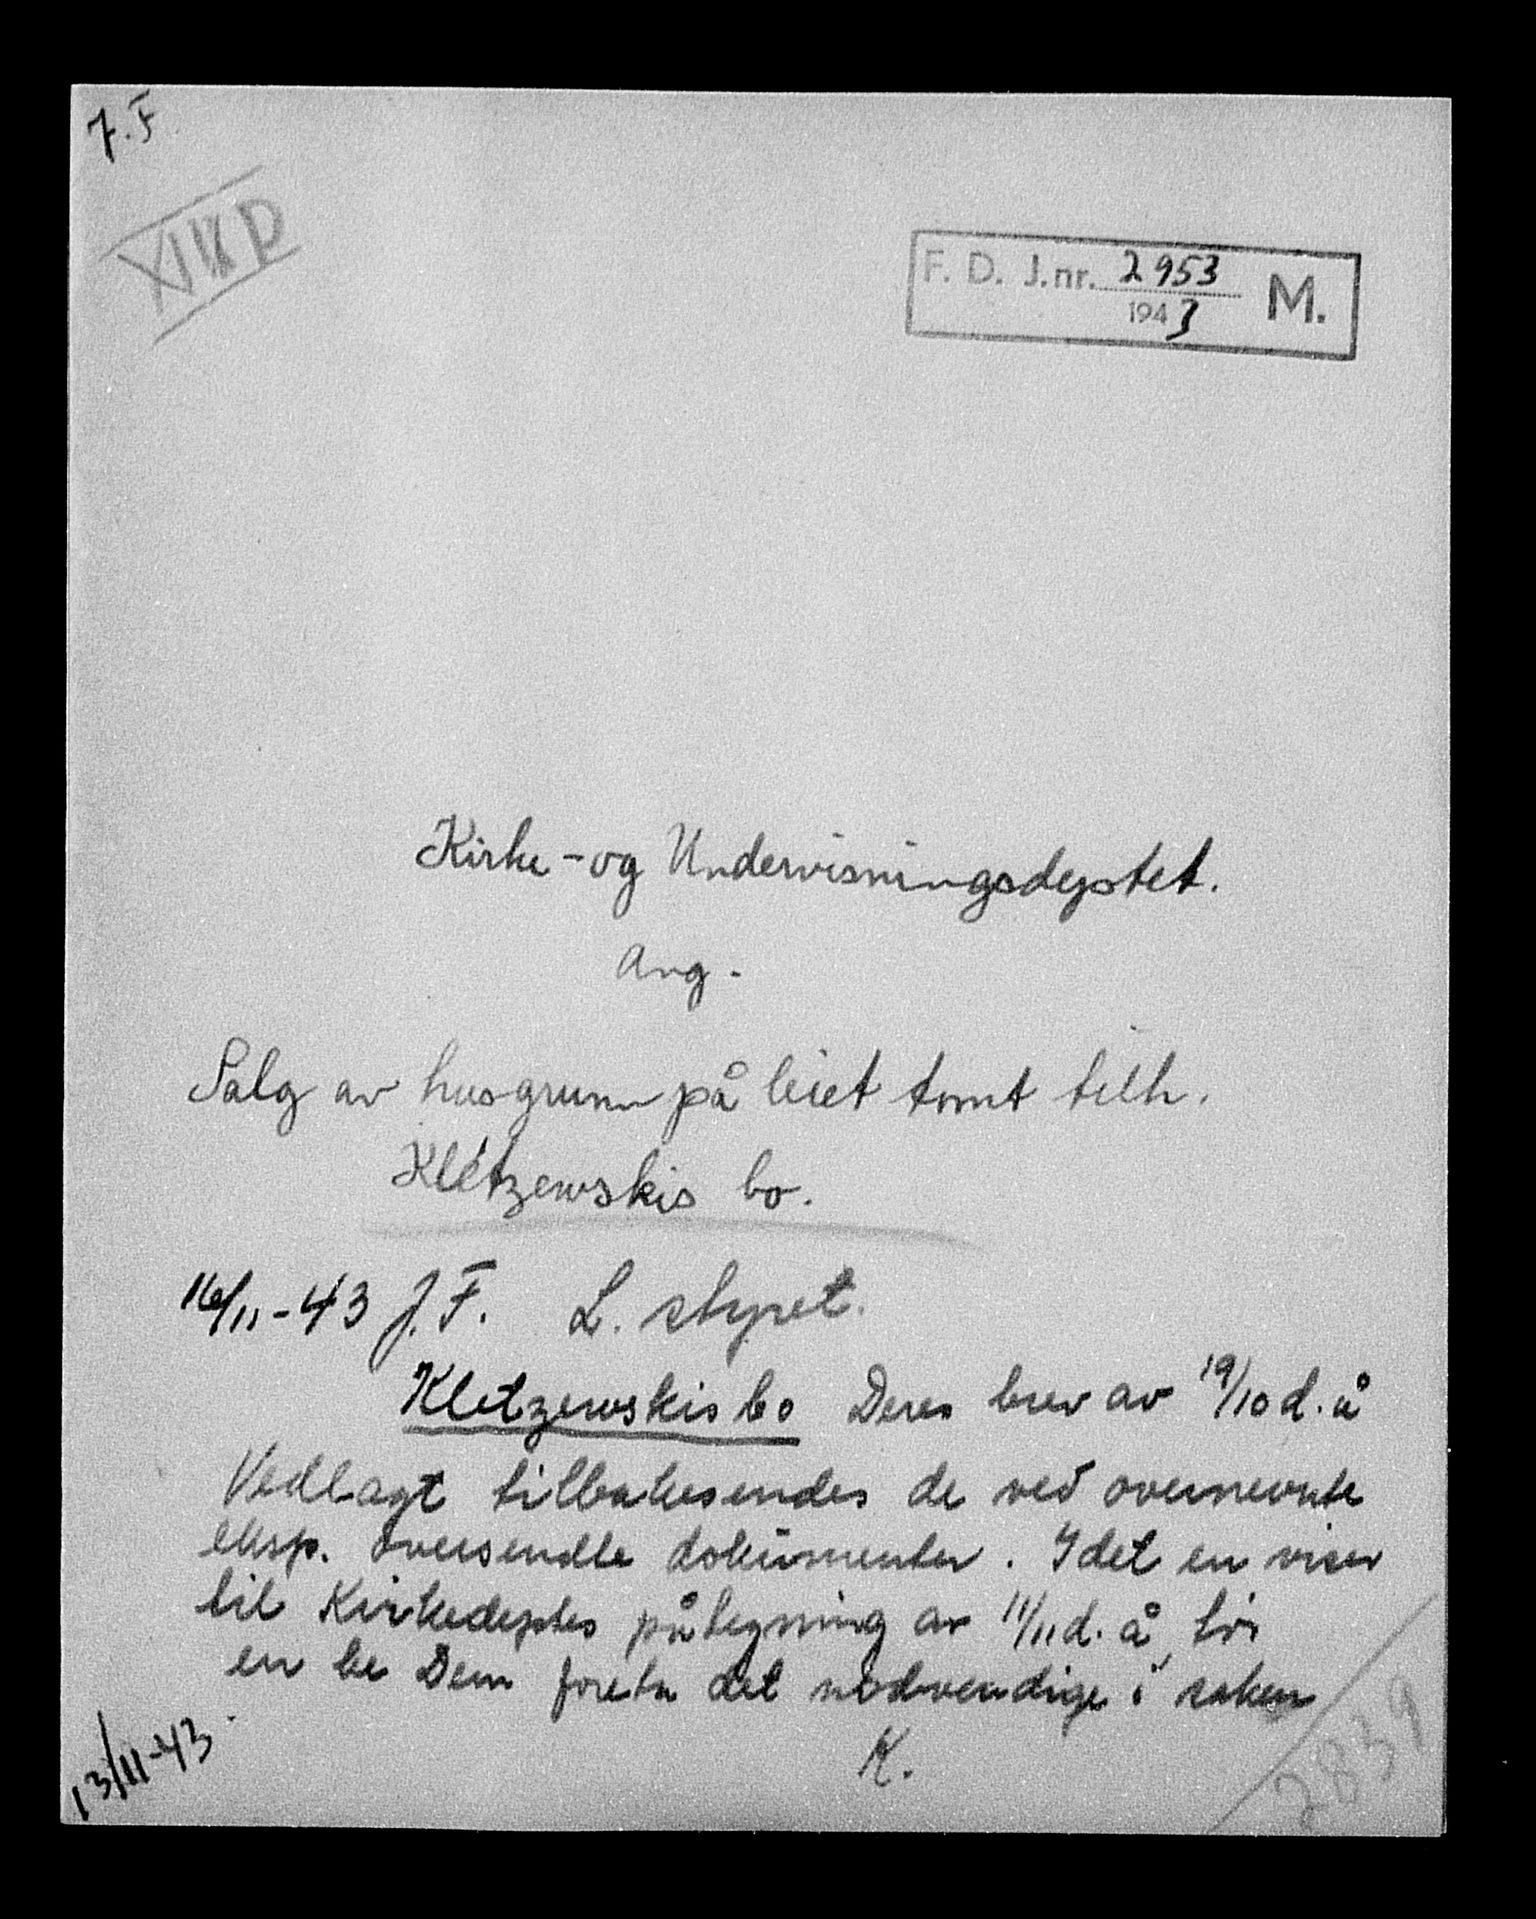 J.F
F. D. J.nr. 2953 M.
1943
Kirke- og Undervisningsdeptet.
Ang.
Salg av husgrunn på leiet tomt tilh.
Kletzewskis bo.
16/11-43 J.F. L. styret.
Kletzewskis bo Deres brev av 19/10 d.å
Vedlagt tilbakesendes de ved ovennevnte
eksp. oversendte dokumenter. Idet en viser
til Kirkedeptes påtegning av 11/11 d.å, tør
en be Dem foreta det nødvendige i saken
K.
13/11-43.
2839